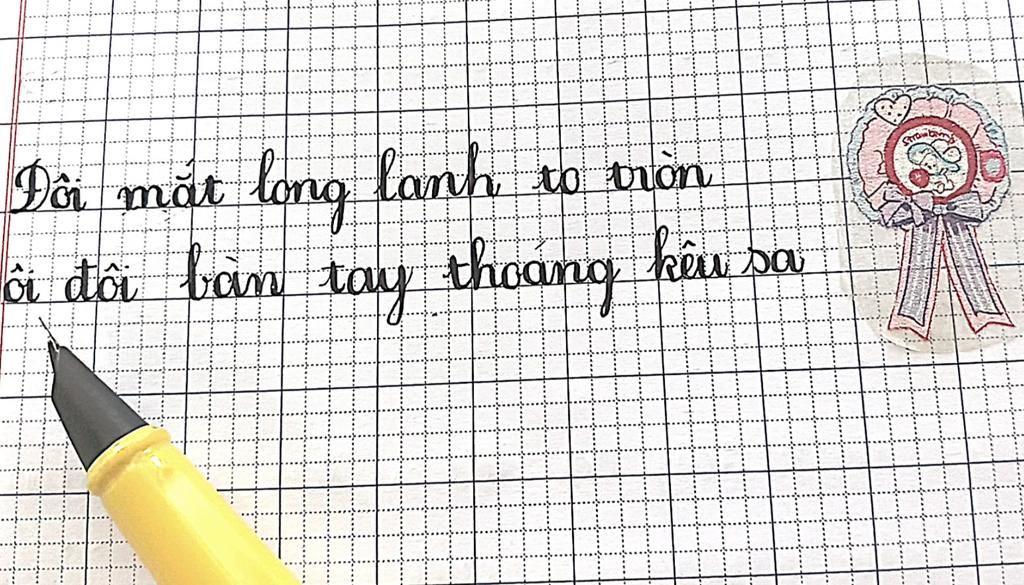 Đôi mắt long lanh to tròn
ôi đôi bàn tay thoáng kêu sa